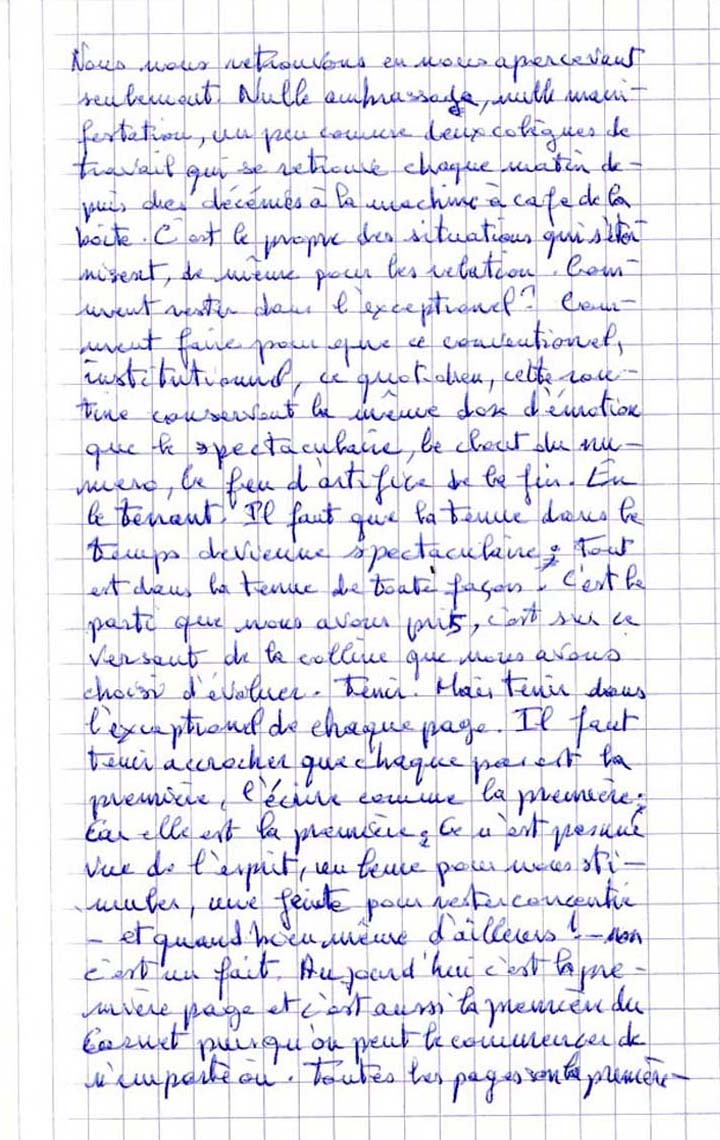 Nous nous retrouvons en nous apercevant
seulement. Nulle embrassade, nulle mani-
festation, un peu comme deux colègues de
travail qui se retrouve chaque matin de-
puis des décénies à la machine à café de la
boîte. C'est le propre des situations qui s'éter
nisent, de même pour les relation. Com-
ment rester dans l'exceptionel? Com-
ment faire pour que ce conventionel,
institutionnel, ce quotidien, cette rou-
tine conservent la même dose d'émotion
que le spectaculaire, le clout du nu-
mero, le feu d'artifice de la fin. En
le tenant. Il faut que la tenue dans le
temps devienne spectaculaire; Tout
est dans la tenue de toute façon. C'est le
parti que nous avons pris, c'est sur ce
versant de la colline que nous avons
choisi d'évoluer. Tenir. Mais tenir dans
l'exceptionel de chaque page. Il faut
tenir accrocher que chaque page est la
première, l'écrire comme la première;
Car elle est la première; Ce n'est pas une
vue de l'esprit, un leurre pour nous sti-
muler, une feinte pour rester concentré
- et quand bien même d'ailleurs! - non
c'est un fait. Aujourd'hui c'est la pre-
mière page et c'est aussi la première du
Carnet puisqu'on peut le commencer de
n'importe où. Toutes les pages sont la première-